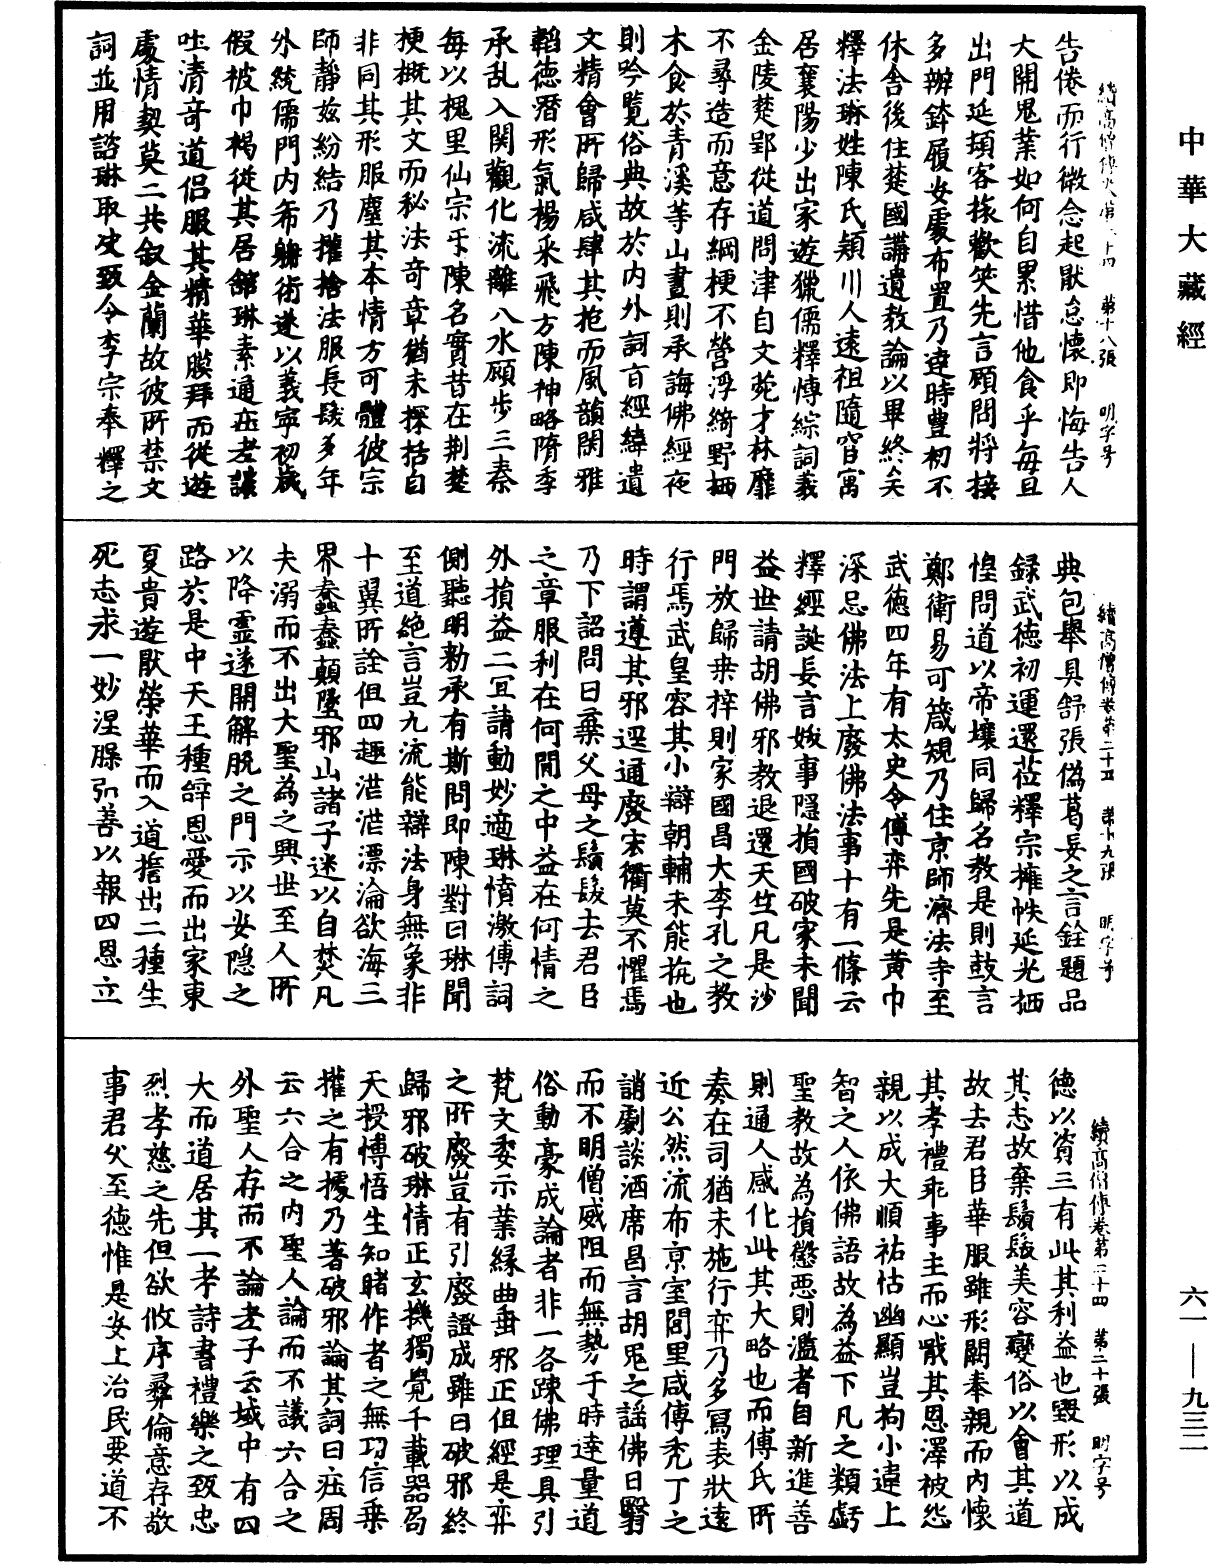 中華大藏經
續高僧傳卷第二十四 第十八張 明字号
告倦而行微念起猒怠懷即悔告人
大開鬼業如何自累惜他食乎每旦
出門延頸客棎歡笑先言顧問將接
多辦鉢履安處布置乃達時豐初不
休舍後住楚國講遺教論以畢終矣
釋法琳姓陳氏穎川人遠祖隨官寓
居襄陽少出家遊獵儒釋博綜詞義
金陵楚郢從道問津自文苑才林靡
不尋造而意存綱梗不營浮綺野栖
木食於青溪等山晝則承誨佛經夜
則吟覽俗典故於內外詞旨經緯遺
文精會所歸咸肆其抱而風韻閑雅
韜德潛形氣楊采飛方陳神略隋季
承乱入関觀化流離八水顧步三秦
每以槐里仙宗于陳名實昔在荆楚
梗概其文而秘法奇章猶未探括自
非同其形服塵其本情方可體彼宗
師靜玆紛結乃權捨法服長髮多年
外統儒門內希聃術遂以義寧初歲
假被巾褐從其居舘琳素通在老談
吐清奇道侶服其精華膜拜而從遊
處情契莫二共叙金蘭故彼所禁文
詞並用諮琳取决致令李宗奉釋之
續高僧傳卷第二十四 第十九張 明字号
典包舉具舒張偽葛妄之言銓題品
録武德初運還莅釋宗擁帙延光栖
惶問道以帝壤同歸名教是則鼓言
鄭衛易可箴規乃住京師濟法寺至
武德四年有太史令傅弈先是黃巾
深忌佛法上廢佛法事十有一條云
釋經誕長言妖事隱損國破家未聞
益世請胡佛邪教退還天竺凡是沙
門放歸桒梓則家國昌大李孔之教
行焉武皇容其小辯朝輔未能抗也
時謂遵其邪逕通廢宏衢莫不懼焉
乃下詔問曰棄父母之鬚髮去君臣
之章服利在何間之中益在何情之
外損益二冝請動妙適琳憤激傅詞
側聽明勅承有斯問即陳對曰琳聞
至道絶言豈九流能辯法身無象非
十翼所詮但四趣茫茫漂淪欲海三
界蠢蠢顛墜邪山諸子迷以自焚凡
夫溺而不出大聖為之興世至人所
以降靈遂開解脫之門示以安隱之
路於是中天王種辝恩愛而出家東
夏貴遊猒榮華而入道擔出二種生
死志求一妙涅槃弘善以報四恩立
續高僧傳卷第二十四 第二十張 明字号
德以資三有此其利益也毀形以成
其志故棄鬚髮美容變俗以會其道
故去君臣華服雖形闕奉親而內懷
其孝禮乖事主而心戢其恩澤被怨
親以成大順祐怙幽顯豈拘小違上
智之人依佛語故為益下凡之類虧
聖教故為損懲惡則濫者自新進善
則通人感化此其大略也而傅氏所
奏在司猶未施行弈乃多冩表狀遠
近公然流布京室閭里咸傅秃丁之
誚劇談酒席昌言胡鬼之謡佛日翳
而不明僧威阻而無勢于時達量道
俗動豪成論者非一各踈佛理具引
梵文委示業緣曲垂邪正但經是弈
之所廢豈有引廢證成雖曰破邪終
歸邪破琳情正玄機獨覺千載器局
天授博悟生知睹作者之無功信乘
權之有據乃著破邪論其詞曰㽵周
云六合之內聖人論而不議六合之
外聖人存而不論老子云域中有四
大而道居其一考詩書禮樂之致忠
烈孝慈之先但欲攸序彞倫意存敬
事君父至德惟是安上治民要道不
六一——九三二